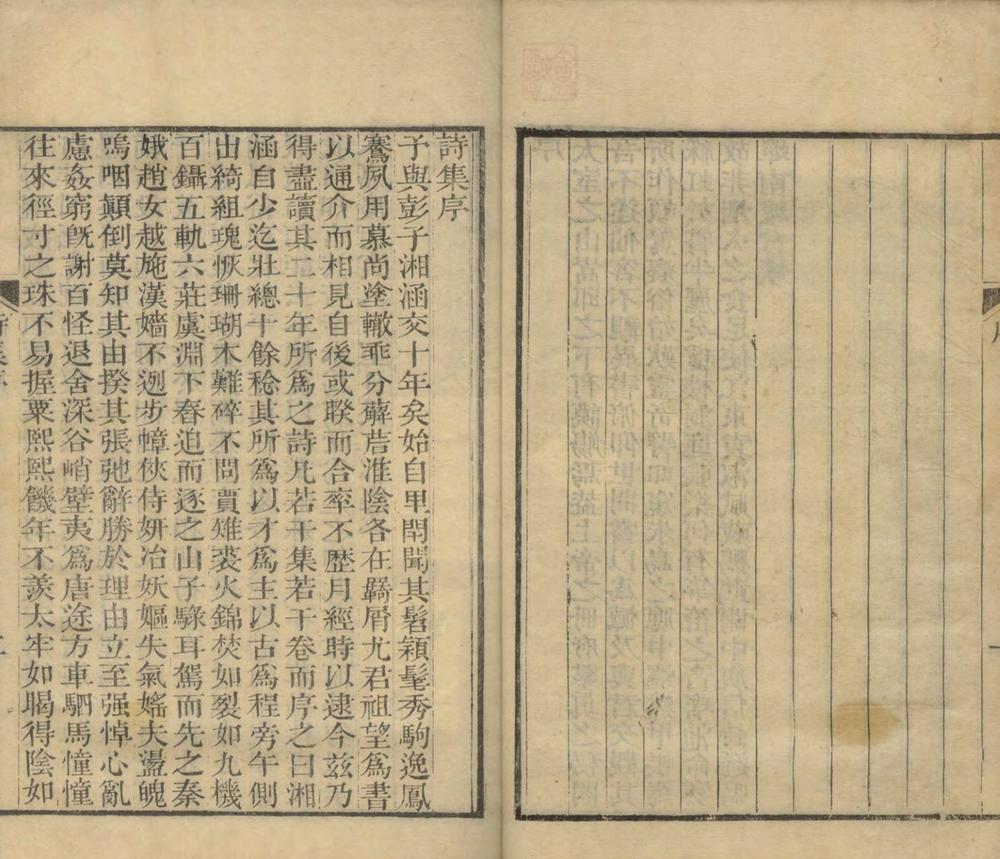 詩集序
子與彭子湘涵交十年矣始自里閈聞其髫穎髦秀駒逸鳳
騫夙用慕尚塗轍乖分薜萻淮陰各在羇屑尤君祖望為書
以通介而相見自後或睽而合率不歷月經時以逮今茲乃
得盡讀其二十年所爲之詩凡若干集若干卷而序之曰湘
涵自少迄壯總十餘稔其所爲以才爲主以古爲程旁午側
出綺組瑰恢珊瑚木難碎不問賈雉裘火錦焚如裂如九機
百鑷五軌六莊虞淵下舂迫而逐之山子騄耳駕而先之秦
娥趙女越施漢嬙不迾步幛俠侍妍冶妖嫗失氣媱夫盪魄
嗚咽顛倒莫知其由揆其張弛辭勝於理由立至强悼心亂
慮姦窮旣謝百怪退舍深谷峭壁夷爲唐途方車駟馬憧憧
往來徑寸之珠不易握粟熙熙饑年不羨太牢如暍得陰如